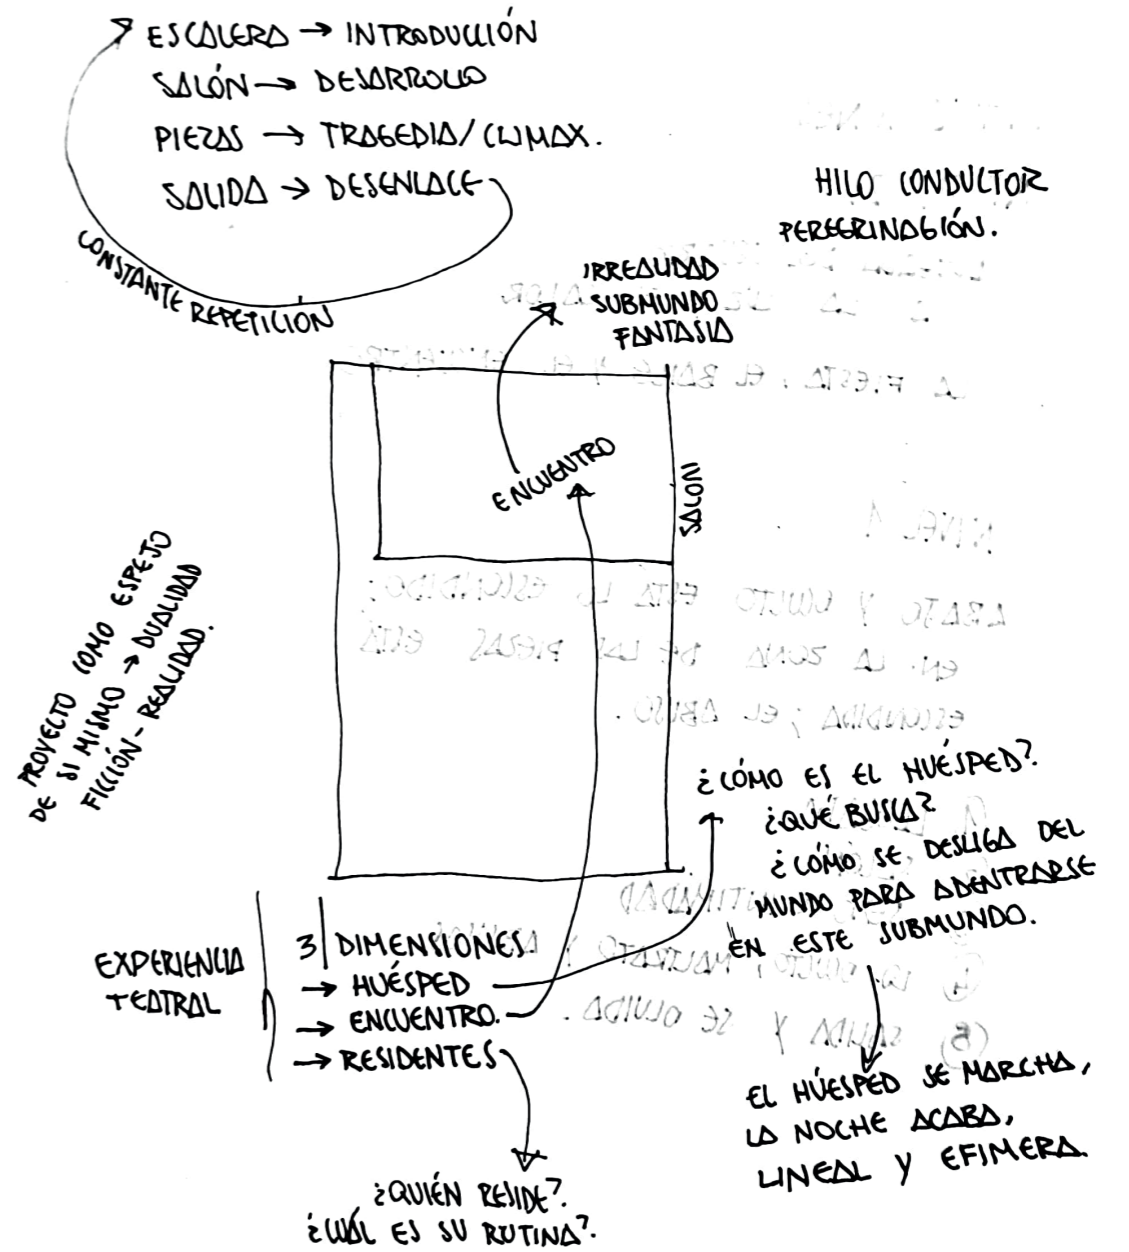 ESCALERA → INTRODUCCIÓN
SALÓN → DESARROLLO
PIEZAS → TRAGEDIA/CLIMAX.
SALIDA → DESENLACE
CONSTANTE REPETICION
HILO CONDUCTOR
PEREGRINAGIÓN.
IRREALIDAD
SUBMUNDO
FANTASIA
ENCUENTRO
SALON
PROYECTO COMO ESPEJO
DE SI MISMO → DUALIDAD
FICCIÓN - REALIDAD.
¿CÓMO ES EL HUÉSPED?
¿QUÉ BUSCA?
¿CÓMO SE DESLIGA DEL
MUNDO PARA ADENTRARSE
EN ESTE SUBMUNDO.
EXPERIENCIA
TEATRAL
3 DIMENSIONES
→ HUÉSPED
→ ENCUENTRO.
→ RESIDENTES
EL HÚESPED SE MARCHA,
LA NOCHE ACABA,
LINEAL Y EFIMERA.
¿QUIÉN RESIDE?
¿CUÁL ES SU RUTINA?